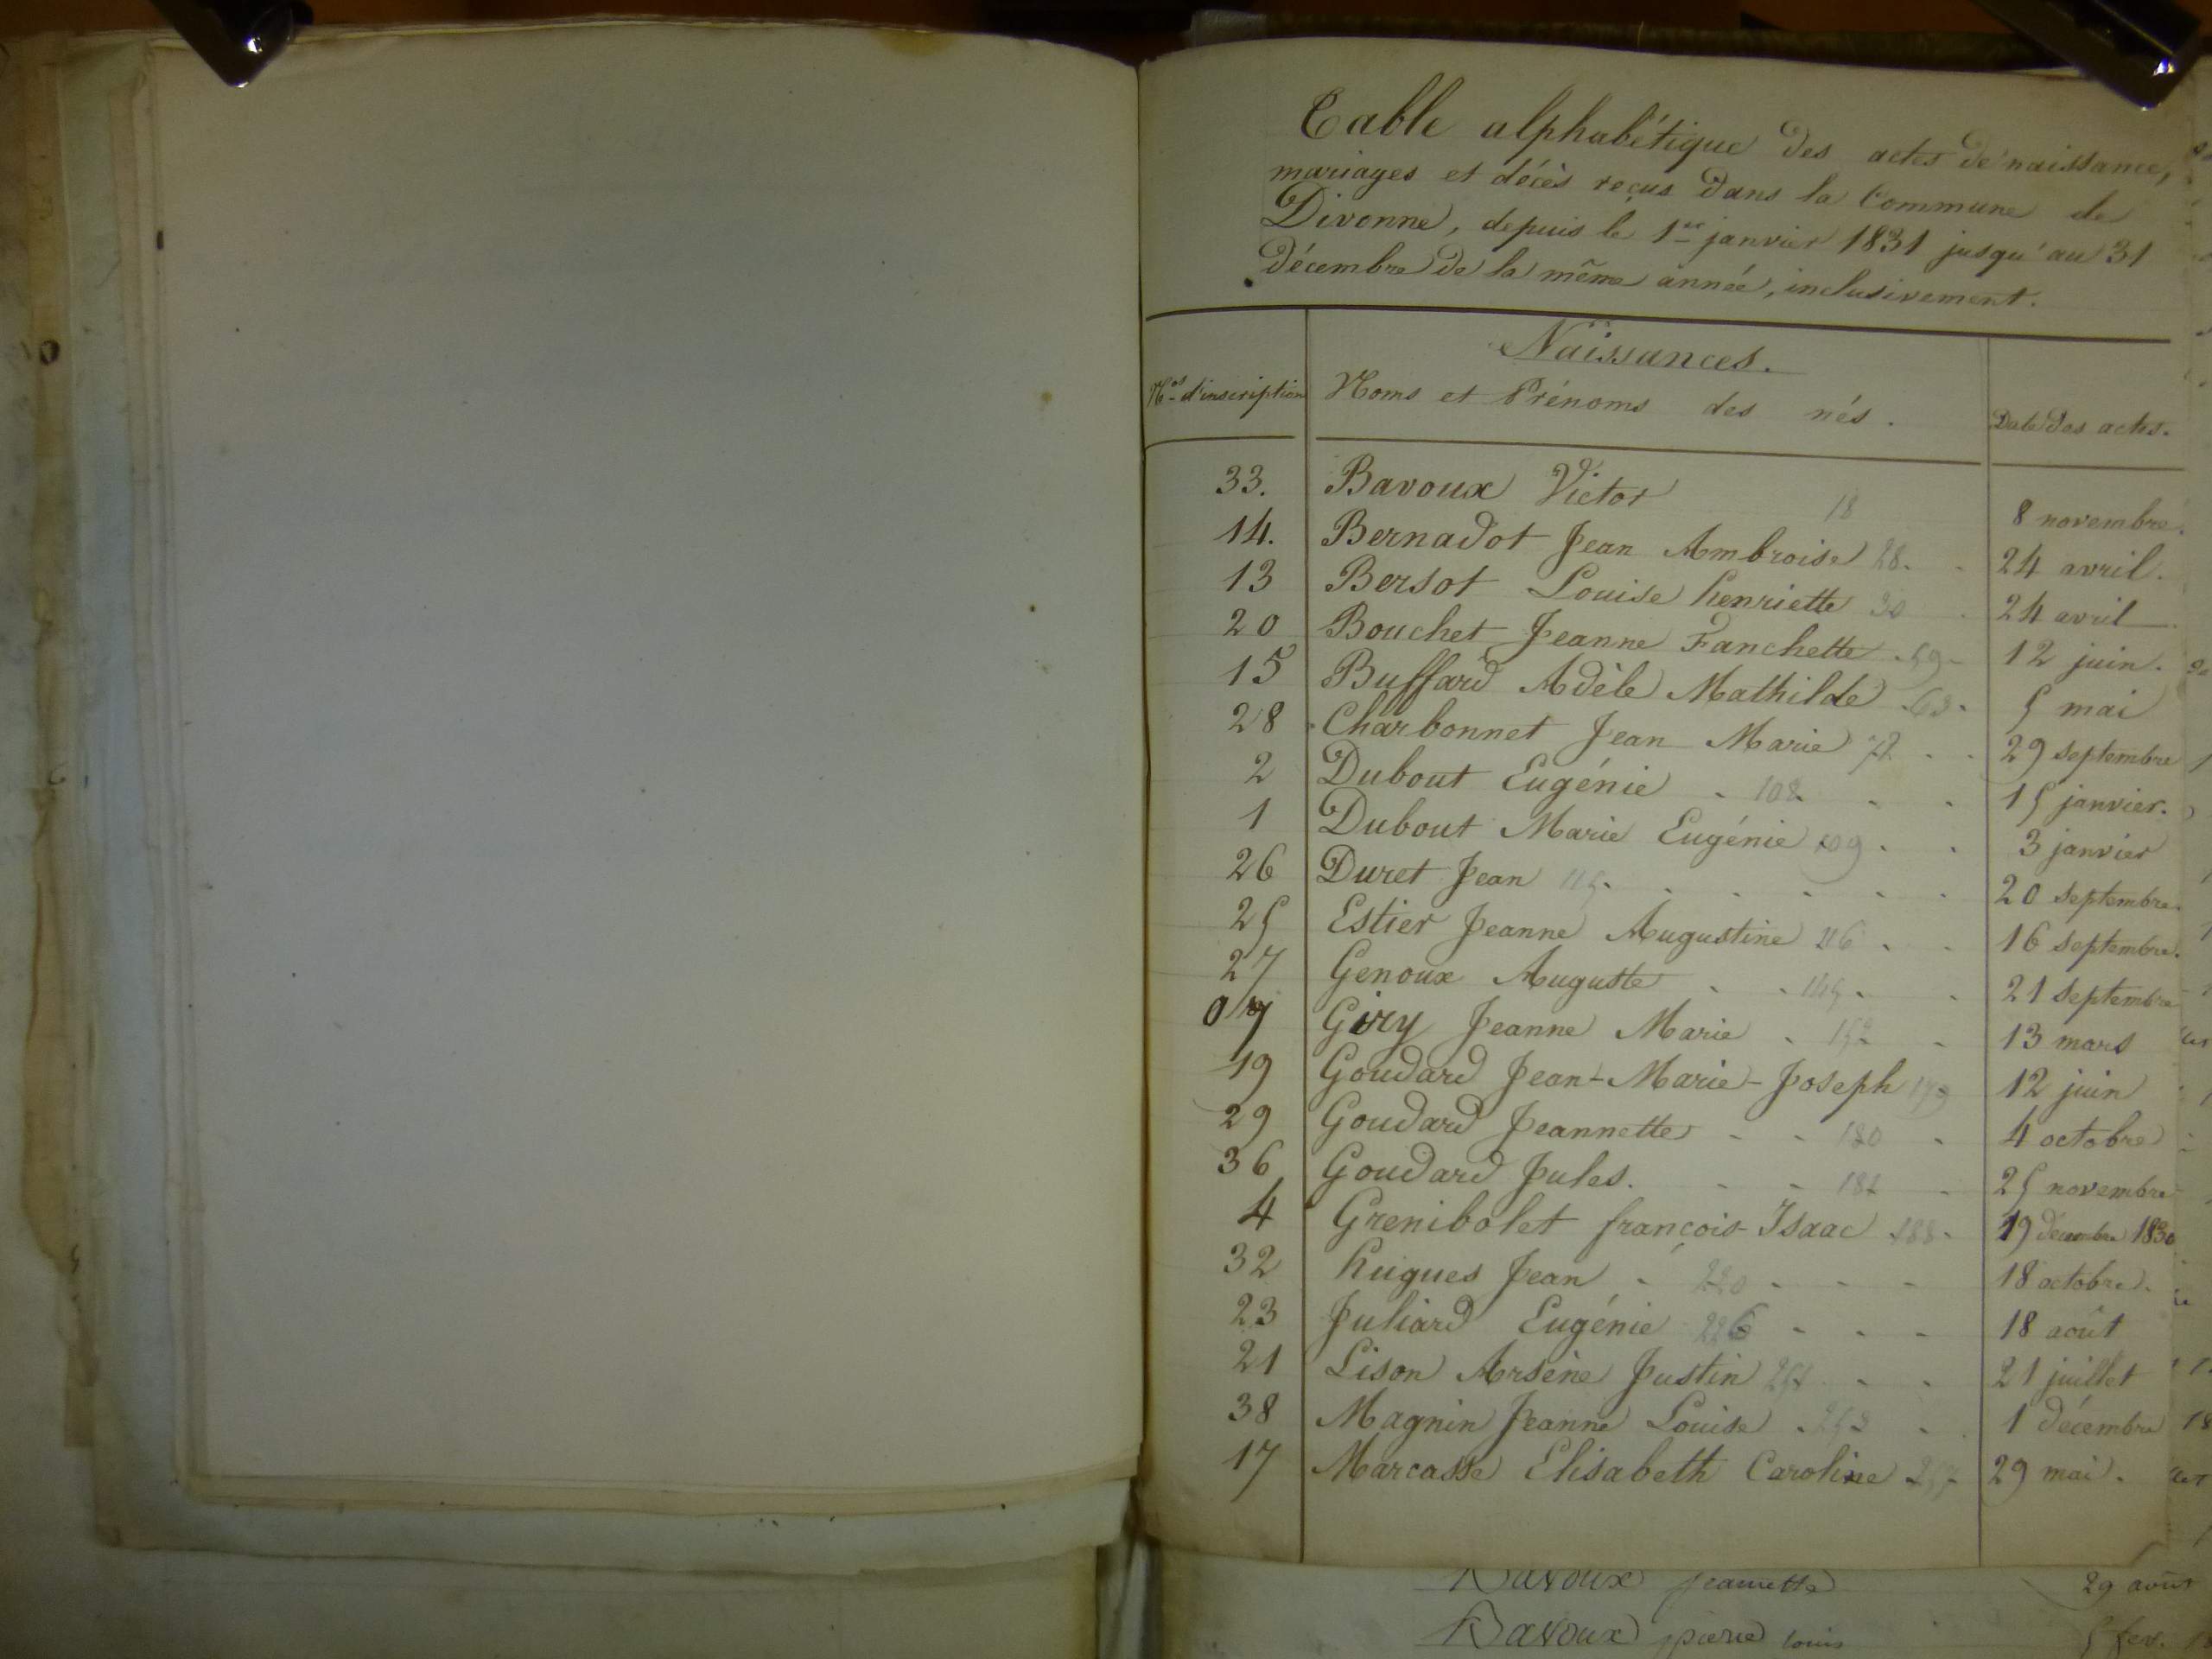 Table alphabétique des actes de naissance,
mariages et décès reçus dans la Commune de
Divonne, depuis le 1er janvier 1831 jusqu'au 31
décembre de la même année, inclusivement.
Naissances.
Nos d'inscription Noms et Prénoms des nés. Date des actes.
33. Bavoux Victor 18 8 novembre.
14. Bernadot Jean Ambroise 28. 24 avril.
13 Bersot Louise henriette 30 24 avril
20 Bouchet Jeanne Fanchette 59 12 juin.
15 Buffard Adèle Mathilde 63 5 mai
28 Charbonnet Jean Marie 72 29 septembre
2 Dubout Eugénie 108 15 janvier.
1 Dubout Marie Eugénie 109 3 janvier
26 Duret Jean 115 20 septembre.
25 Estier Jeanne Augustine 116 16 septembre.
27 Genoux Auguste 145 21 septembre
07 Giry Jeanne Marie 152 13 mars
19 Goudard Jean-Marie-Joseph 179 12 juin
29 Goudard Jeannette 180 4 octobre
36 Goudard Jules. 182 25 novembre
4 Grenibolet françois-Isaac 188 19 décembre 1830
32 hugues Jean 220 18 octobre.
23 Juliard Eugénie 226 18 août
21 Lison Arsène Justin 21 juillet
38 Magnin Jeanne Louise 253 1 décembre
17 Marcasse Elisabeth Caroline 257 29 mai.
Bavoux jeannette 29 août
Bavoux pierre louis 5 fev.